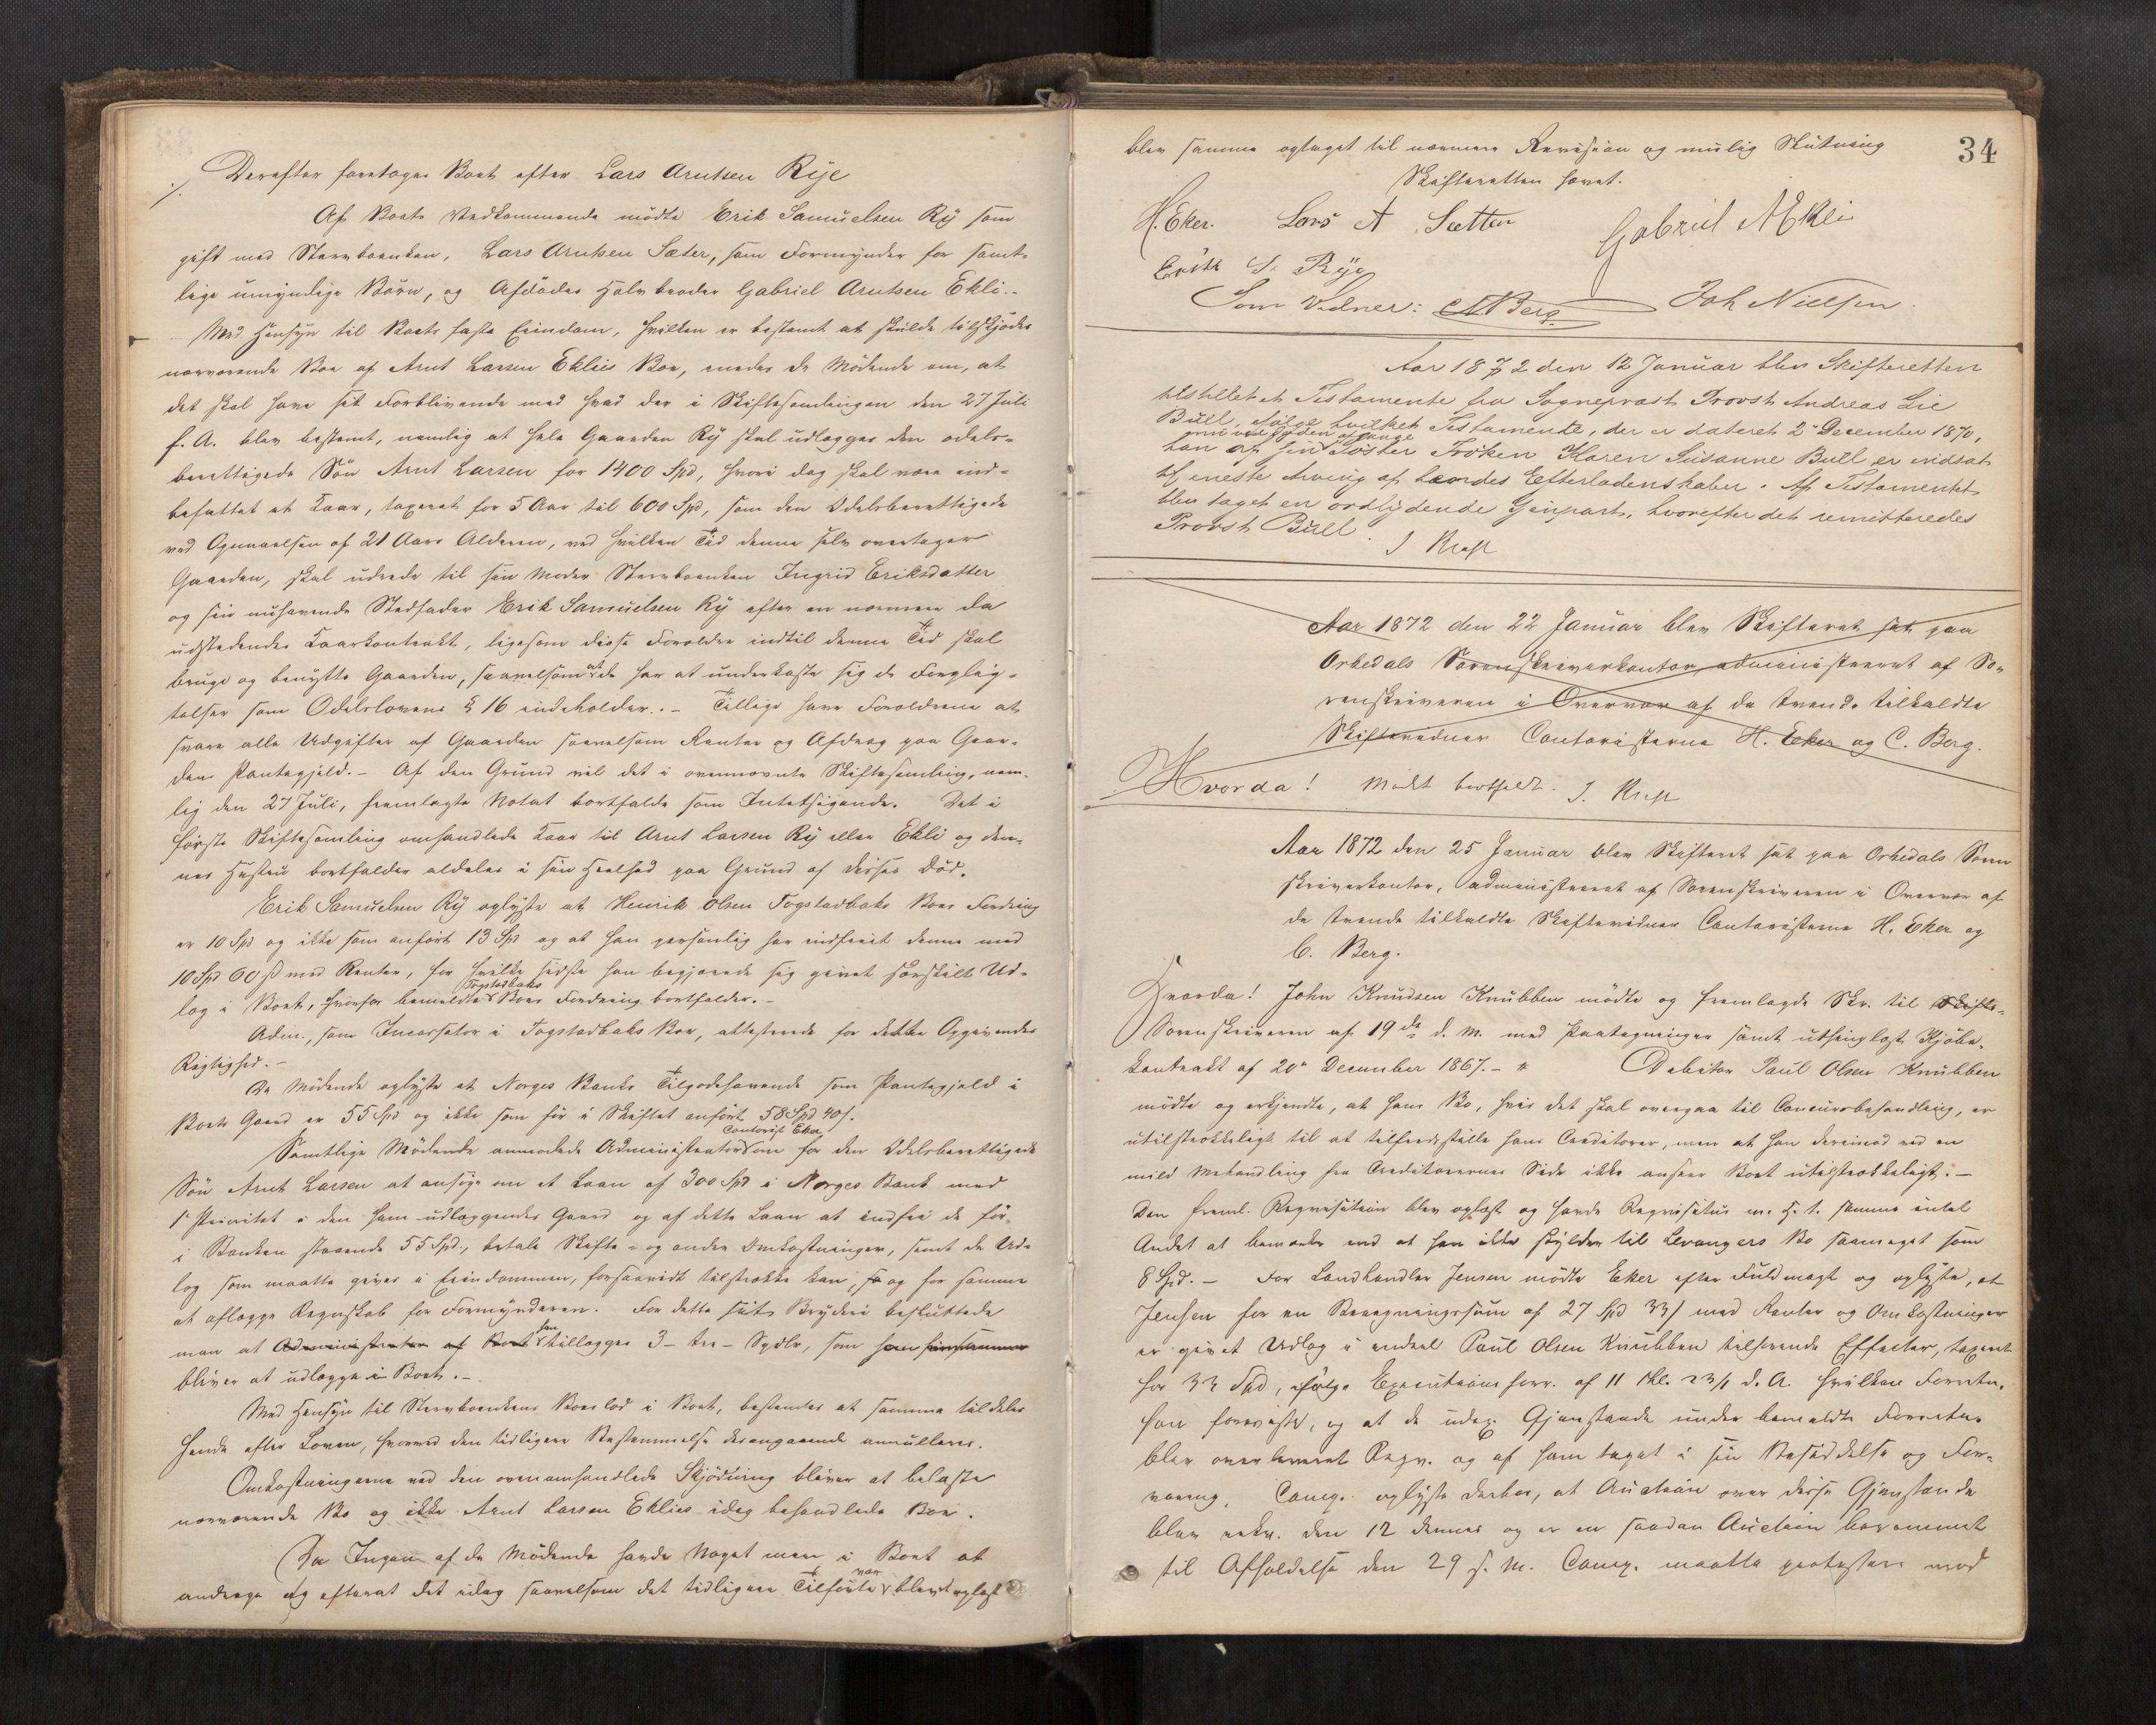 Derefter foretoges Boet efter Lars Arntsen Rye
Af Boets Vedkommende mödte Erik Samuelsen Ry som
gift med Stervboenken, Lars Arntsen Sæter, som Formynder for samt-
lige umyndige Börn, og Afdödes Halvbroder Gabriel Arntsen Ekli.-
Med Hensyn til Boets faste Eiendom, hvilken er bestemt at skulde tilskjödes
nærværende Boe af Arnt Larsen Eklies Boe, enedes de Mödende om, at
det skal have sit Forblivende med hvad der i Skiftesamlingen den 27 Juli
f. A. blev bestemt, nemlig at hele Gaarden Ry skal udlægges den odels-
berettigede Sön Arnt Larsen for 1400 Spd, hvori dog skal være ind-
befattet et Kaar, taxeret for 5 Aar til 600 Spd, som den Odelsberettigede
ved Opnaaelsen af 21 Aars Alderen, ved hvilken Tid denne selv overtager
Gaarden, skal udrede til sin Moder Stervboenken Ingrid Eriksdatter
og sin nuhavende Stedfader Erik Samuelsen Ry efter en nærmere da
udstedendes Kaarkontrakt, ligesom disse Forældre indtil denne Tid skal
bruge og benytte Gaarden, saavelsom at de har at underkaste sig de Forplig-
telser som Odelslovens § 16 indeholder.- Tillige have Forældrene at
svare alle Udgifter af Gaarden saavelsom Renter og Afdrag paa Gaar-
dens Pantegjæld.- Af den Grund vil det i ovennævnte Skiftesamling, nem-
lig den 27 Juli, fremlagte Notat bortfalde som Intetsigende. Det i
første Skiftesamling omhandlede Kaar til Arnt Larsen Ry eller Ekli og den-
nes Hustru bortfalder aldeles i sin Heelhed paa Grund af disses Död.
Erik Samuelsen Ry oplyste at Henrik Olsen Fogstadbaks Boes Fordring
er 10 Spd og ikke som anfört 13 Spd og at han personlig har indfriet denne med
10 Spd 60 ß med Renter, for hvilke sidste han begjærede sig givet særskilt Ud-
læg i Boet, hvorfor bemeldte Fogstadbaks Boes Fordring bortfalder.-
Adm., som Incassator i Fogstadbaks Boe, attesterede for dette Opgivendes
Rigtighed.-
De Mödende oplyste at Norges Banks Tilgodehavende som Pantegjæld i
Boets Gaard er 55 Spd og ikke som för i Skiftet anfört 58 Spd 40 ß.
Samtlige Mödende anmodede Administrator Contorist Eker om for den Odelsberettigede
Sön Arnt Larsen at ansöge om et Laan af 300 Spd i Norges Bank med
1ste Prioritet i den ham udlæggendes Gaard og af dette Laan at indfri de för
i Banken staaende 55 Spd, betale Skifte- og andre Omkostninger, samt de Ud-
læg som maatte gives i Eiendommen, forsaavidt tilstrække kan, og for samme
at aflægge Regnskab for Formynderen. For dette sit Bryderi besluttede
man at Administrator af Boet ham tillægges 3 - tre - Spdlr, som
bliver at udlægge i Boet.-
Med Hensyn til Stervboenkens Boeslod i Boet, bestemtes at samme tildeles
hende efter Loven, hvorved den tidligere Bestemmelse desangaaende annulleres.
Omkostningerne ved den ovenomhandlede Skjödning bliver at belaste
nærværende Bo og ikke Arnt Larsen Eklies idag behandlede Boe.
Da Ingen af de Mödende havde Noget mere i Boet at
andrage og efterat det idag saavelsom det tidligere Tilförte var blevet oplæst
34
blev samme optaget til nærmere Revision og mulig Slutning
Skifteretten hævet.
H. Eker. Lars A Sætter Gabriel A Ekli
Erik S. Rye
Som Vidner: C Berg Joh Nielsen
Aar 1872 den 12 Januar blev Skifteretten
tilstillet et Testamente fra Sogneprest Provst Andreas Lie
Bull, ifölge hvilket Testamente, der er dateret 2den December 1870,
han af sin Söster Fröken Karen Susanne Bull er indsat
til eneste Arving af hendes Efterladenskaber. Af Testamentet
blev taget en ordlydende Gjenpart, hvorefter det remitteredes
Provst Bull.
Aar 1872 den 22 Januar blev Skifteret sat paa
Orkedals Sorenskriverkontor, administreret af So-
renskriveren i Overvær af de tvende tilkaldte
Skiftevidner Contoristerne H. Eker og C. Berg.
Hvorda! Mödet bortfaldt.
Aar 1872 den 25 Januar blev Skifteret sat paa Orkedals Soren
skriverkontor, administreret af Sorenskriveren i Overvær af
de tvende tilkaldte Skiftevidner Contoristerne H. Eker og
C. Berg.
Hvorda! John Knudsen Knubben mödte og fremlagde Skr. til Skifte-
Sorenskriveren af 19de d. M. med Paategninger samt uthinglæst Kjöbe-
kontrakt af 20de December 1867.- Debitor Paul Olsen Knubben
mödte og erkjendte, at hans Bo, hvis det skal overgaa til Concursbehandling, er
utilstrækkeligt til at tilfredsstille hans Creditorer, men at han derimod ved en
mild Behandling fra Creditorernes Side ikke anseer Boet utilstrækkeligt.-
Den freml. Reqvisition blev oplæst og havde Reqvisitus m. H. t. samme intet
Andet at bemærke end at han ikke skylder til Levangers Bo saameget som
8 Spd.- For Landhandler Jensen mödte Eker efter Fuldmagt og oplyste, at
Jensen for en Beregningssum af 27 Spd 33 ß med Renter og Omkostninger
er givet Udlæg i endeel Paul Olsen Knubben tilhörende Effecter, taxeret
for 33 Spd, ifölge Executionsforr. af 11 Okt. 23/1 d. A. hvilken Forretn.
han foreviste, og at de udlæg. Gjenstande under bemeldte Forretn.
blev overleveret Reqv. og af ham taget i sin Besiddelse og For-
varing. Comp. oplyste derhos, at Auction over disse Gjenstande
blev rekv. den 12 dennes og er en saadan Auction berammet
til Afholdelse den 29 s. M. Comp. maatte protestere mod